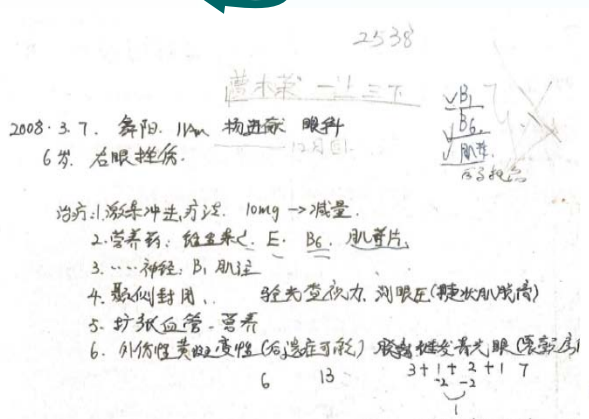 2538
黄木荣 一上三下
√B₁
√B6.
√肌苷.
2008.3.7. 舞阳. 11Am 杨进献 眼科
12月日
6岁. 右眼挫伤.
治疗:1.激素冲击疗法. 10mg→减量.
2.营养药: 维生素C. E. B6. 肌苷片.
3. ……神经: B₁ 肌注
4. 颞侧封闭.. 验光查视力, 测眼压(睫状肌脱离)
5. 扩张血管. 营养
6. 外伤性黄斑变性(后遗症可能) 继发青光眼
3+1+2+1 7
6 13
-2 -2
1